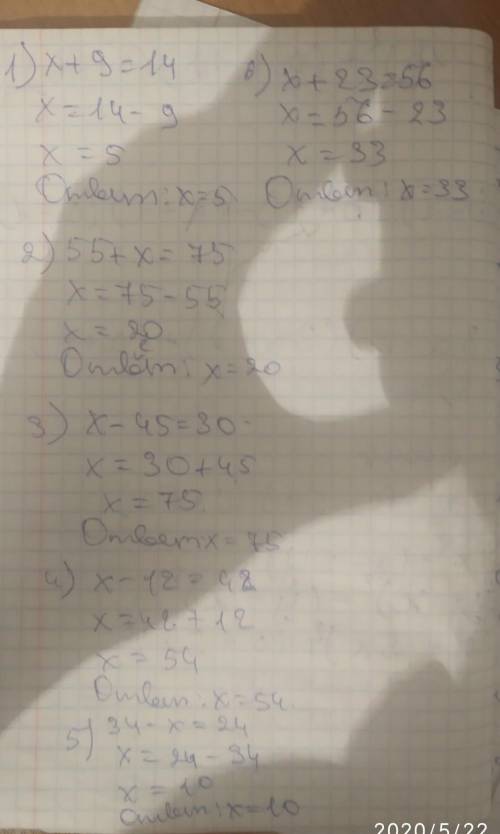 1) x + 9 = 14
x = 14 - 9
x = 5
Ответ: x = 5
6) x + 23 = 56
x = 56 - 23
x = 33
Ответ: x = 33
2) 55 + x = 75
x = 75 - 55
x = 20
Ответ: x = 20
3) x - 45 = 30
x = 30 + 45
x = 75
Ответ x = 75
4) x - 12 = 42
x = 42 + 12
x = 54
Ответ: x = 54.
5) 34 - x = 24
x = 24 - 34
x = 10
Ответ: x = 10
2020/5/22